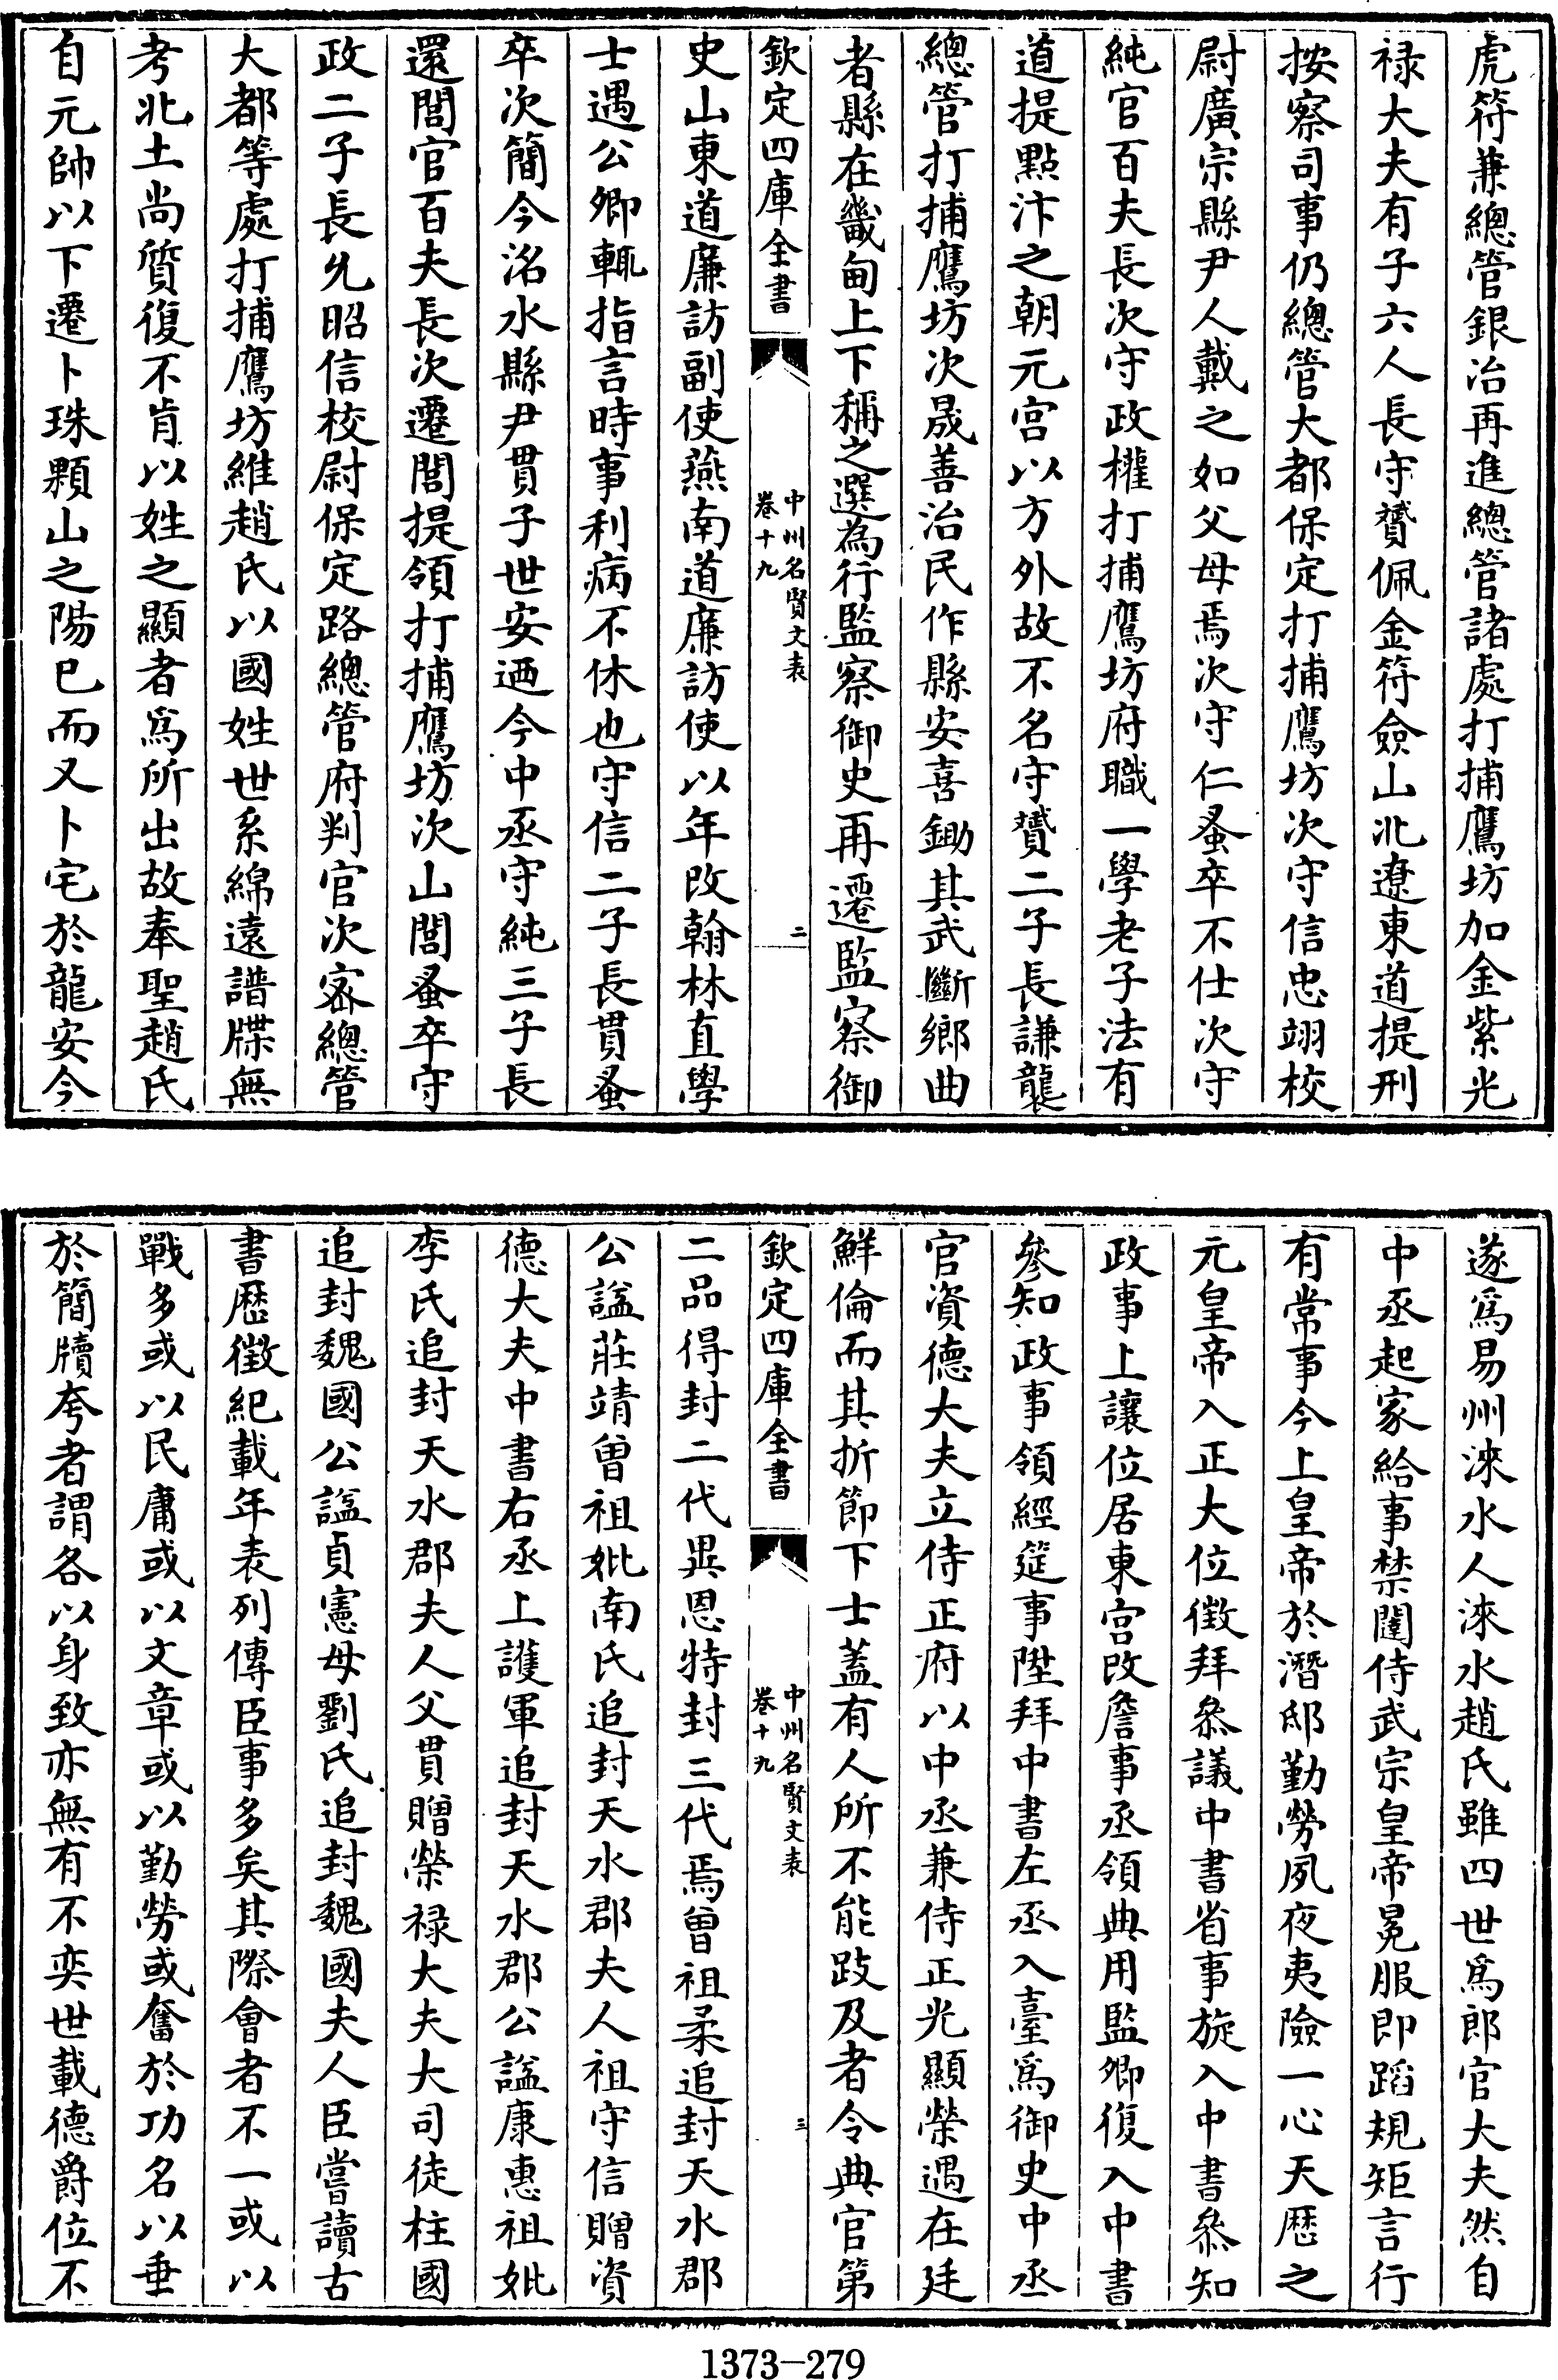 虎符兼總管銀冶再進總管諸處打捕鷹坊加金紫光
祿大夫有子六人長守贇佩金符僉山北遼東道提刑
按察司事仍總管大都保定打捕鷹坊次守信忠翊校
尉廣宗縣尹人戴之如父母焉次守仁蚤卒不仕次守
純官百夫長次守政權打捕鷹坊府職一學老子法有
道提點汴之朝元宮以方外故不名守贇二子長謙襲
總管打捕鷹坊次晟善治民作縣安喜鋤其武斷鄉曲
者縣在畿甸上下稱之選為行監察御史再遷監察御
欽定四庫全書
中州名賢文表
卷十九
二
史山東道廉訪副使燕南道廉訪使以年改翰林直學
士遇公卿輒指言時事利病不休也守信二子長貫蚤
卒次簡今洺水縣尹貫子世安迺今中丞守純三子長
還閭官百夫長次遷閭提領打捕鷹坊次山閭蚤卒守
政二子長允昭信校尉保定路總管府判官次宻總管
大都等處打捕鷹坊維趙氏以國姓世系綿遠譜牒無
考北土尚質復不肯以姓之顯者爲所出故奉聖趙氏
自元帥以下遷卜珠顆山之陽巳而又卜宅於龍安今
遂爲易州淶水人淶水趙氏雖四世爲郎官大夫然自
中丞起家給事禁闥侍武宗皇帝冕服即蹈規矩言行
有常事今上皇帝於潛邸勤勞夙夜夷險一心天歷之
元皇帝入正大位徴拜叅議中書省事旋入中書叅知
政事上讓位居東宮改詹事丞領典用監卿復入中書
參知政事領經筵事陞拜中書左丞入臺爲御史中丞
官資德大夫立侍正府以中丞兼侍正光顯榮遇在廷
鮮倫而其折節下士蓋有人所不能跂及者令典官第
欽定四庫全書
中州名賢文表
卷十九
三
二品得封二代異恩特封三代焉曾祖柔追封天水郡
公諡莊靖曾祖妣南氏追封天水郡夫人祖守信贈資
德大夫中書右丞上護軍追封天水郡公諡康惠祖妣
李氏追封天水郡夫人父貫贈榮祿大夫大司徒柱國
追封魏國公諡貞憲母劉氏追封魏國夫人臣嘗讀古
書歷徴紀載年表列傳臣事多矣其際會者不一或以
戰多或以民庸或以文章或以勤勞或奮於功名以垂
於簡牘夸者謂各以身致亦無有不奕世載德爵位不
1373—279